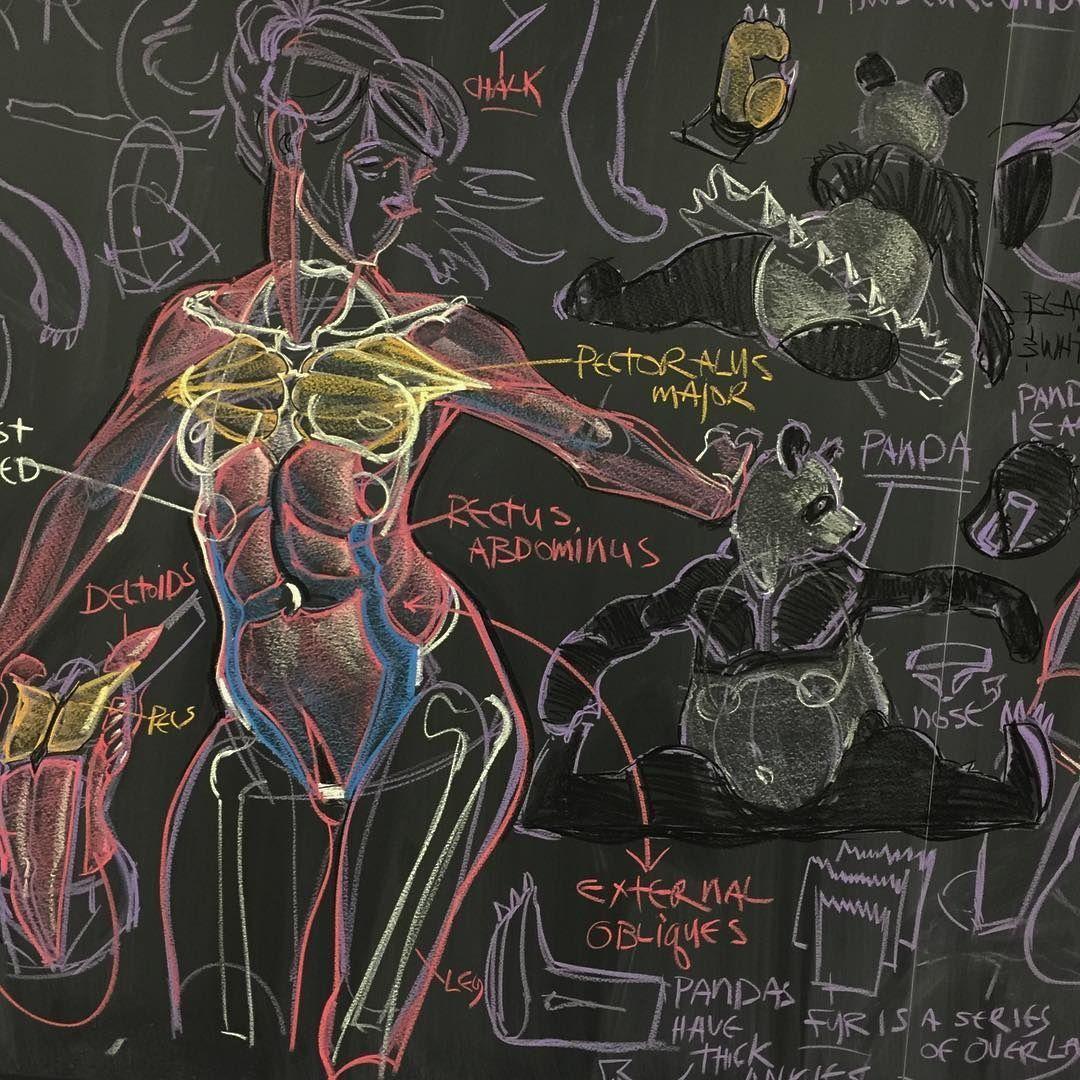 CHALK
PECTORALUS
MAJOR
ST
ED
PANDA
RECTUS
ABDOMINUS
DELTOIDS
PECS
NOSE
EXTERNAL
OBLIQUES
LEG
PANDAS
HAVE
THICK
ANKLES
FUR IS A SERIES
OF OVERLA